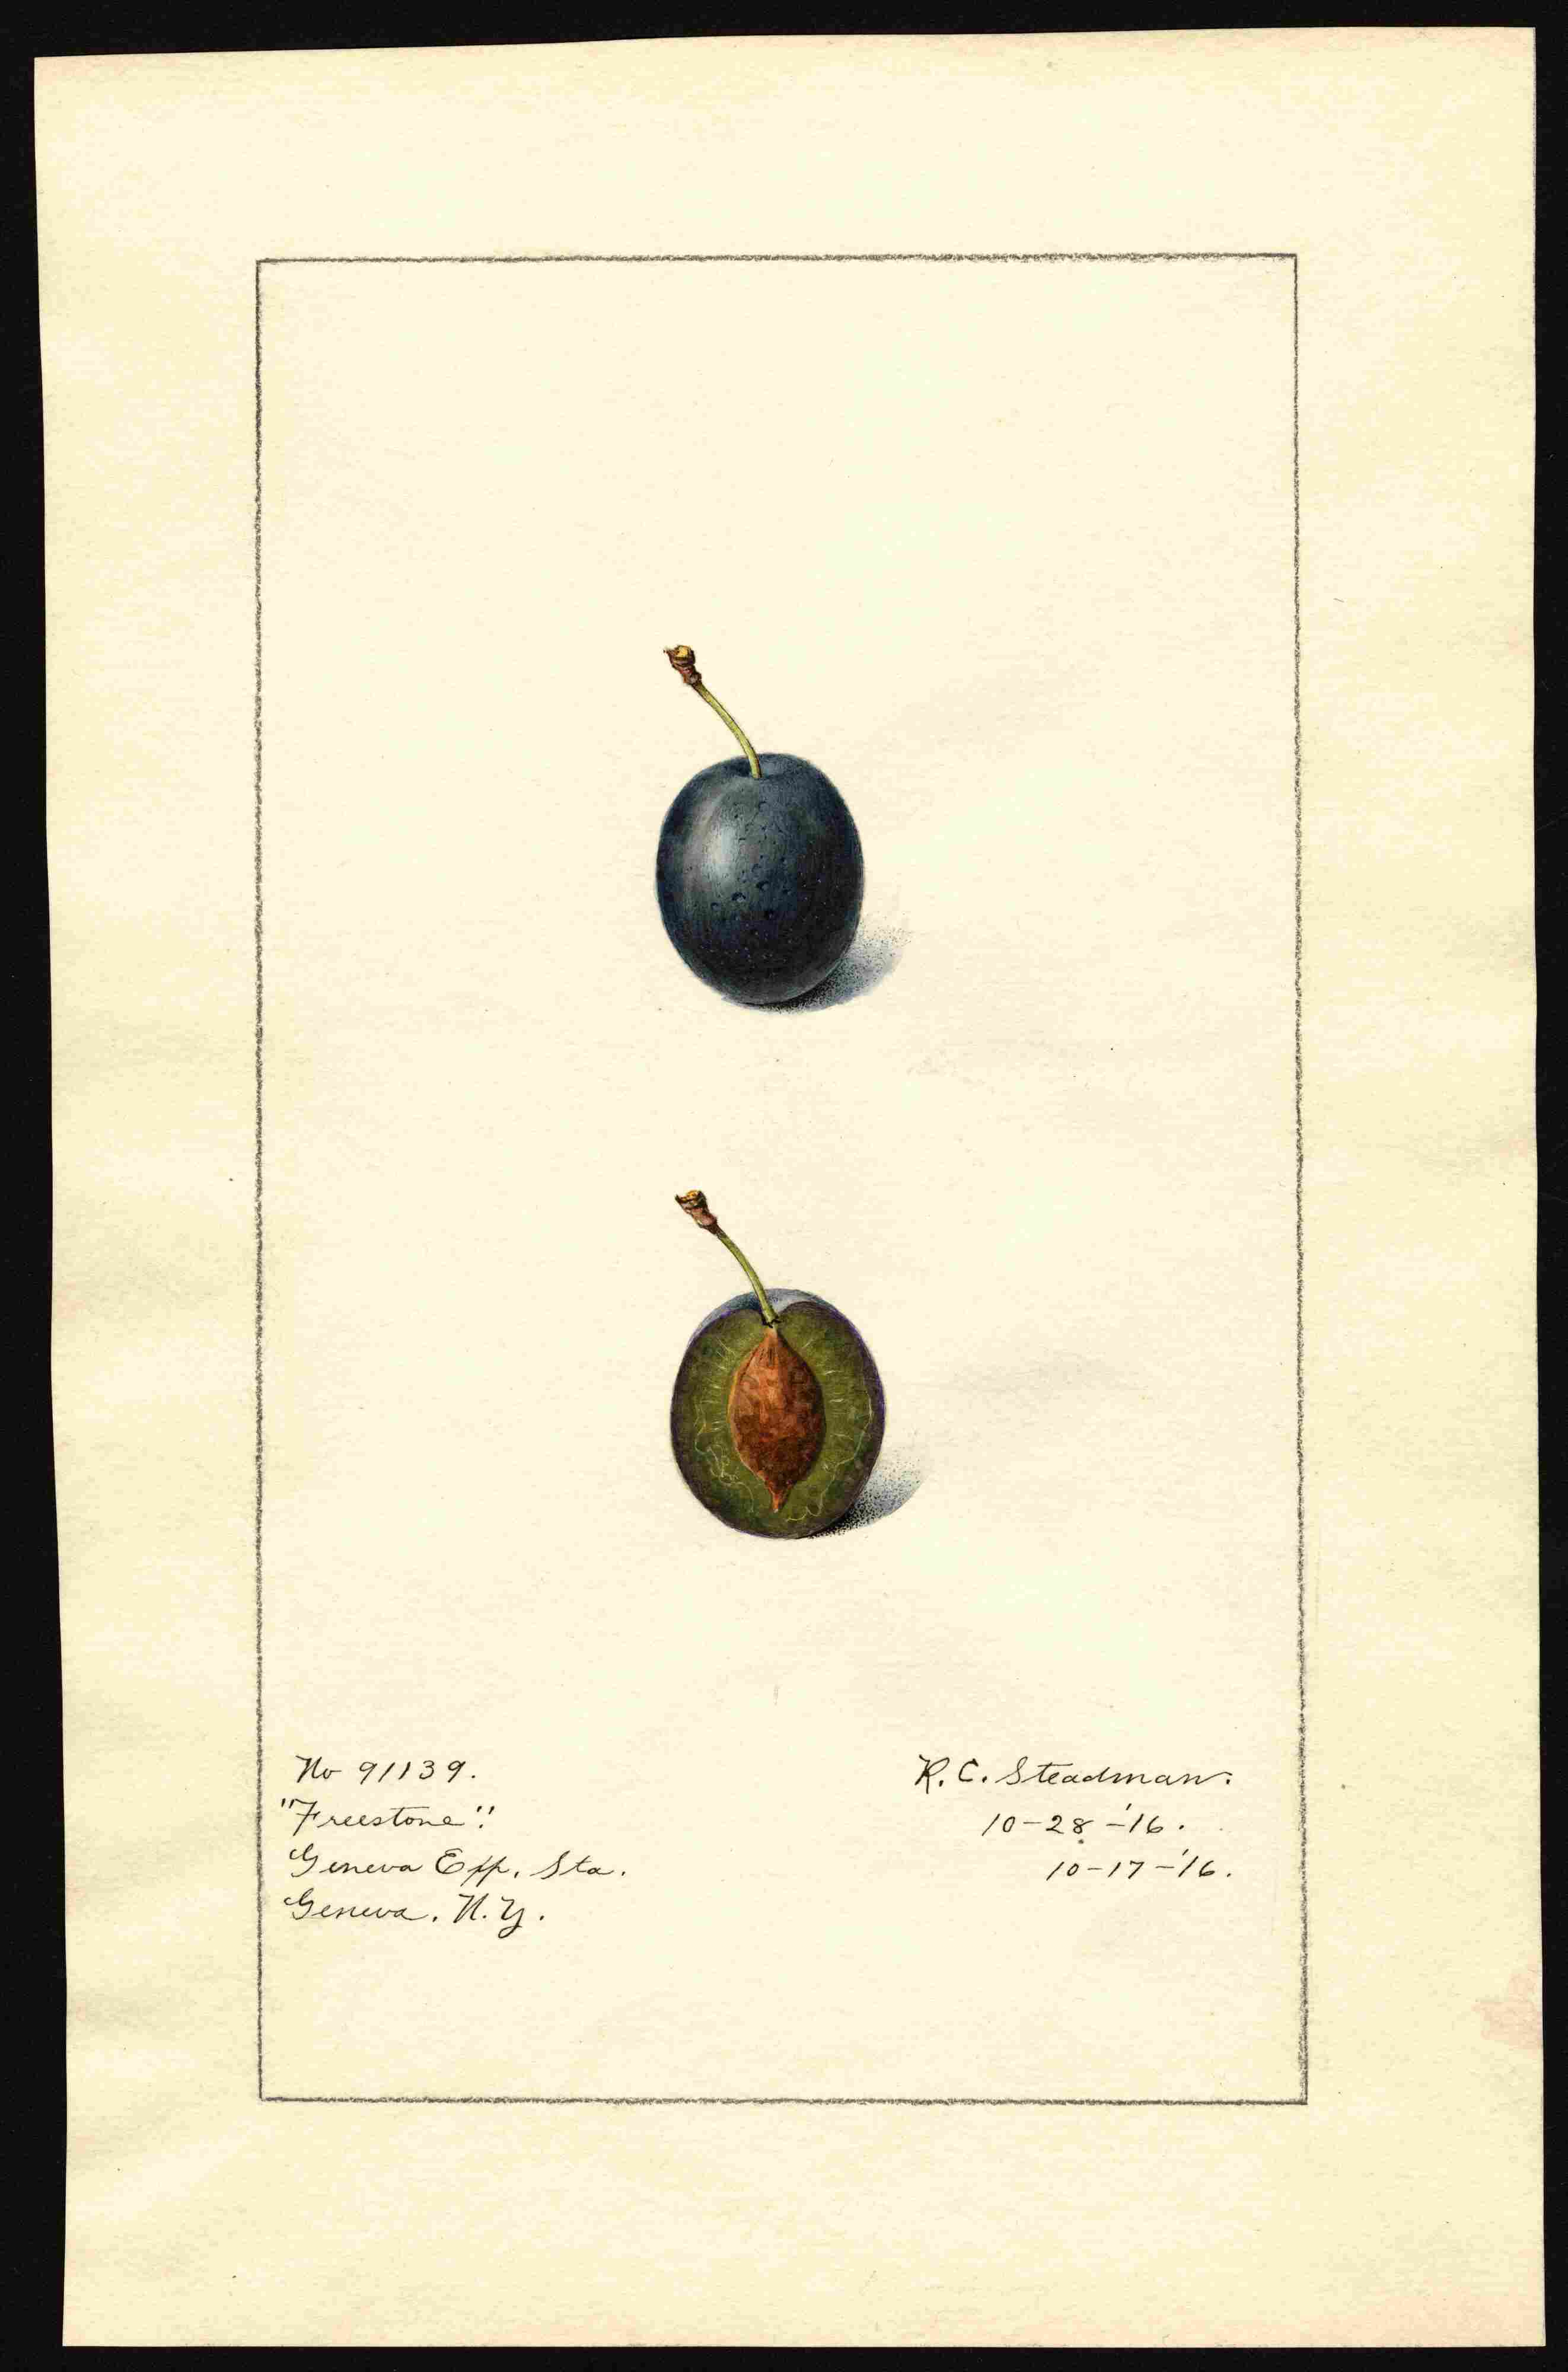 No 91139.
"Freestone".
Geneva Exp. Sta.
Geneva. N.Y.
R. C. Steadman.
10-28-'16.
10-17-'16.